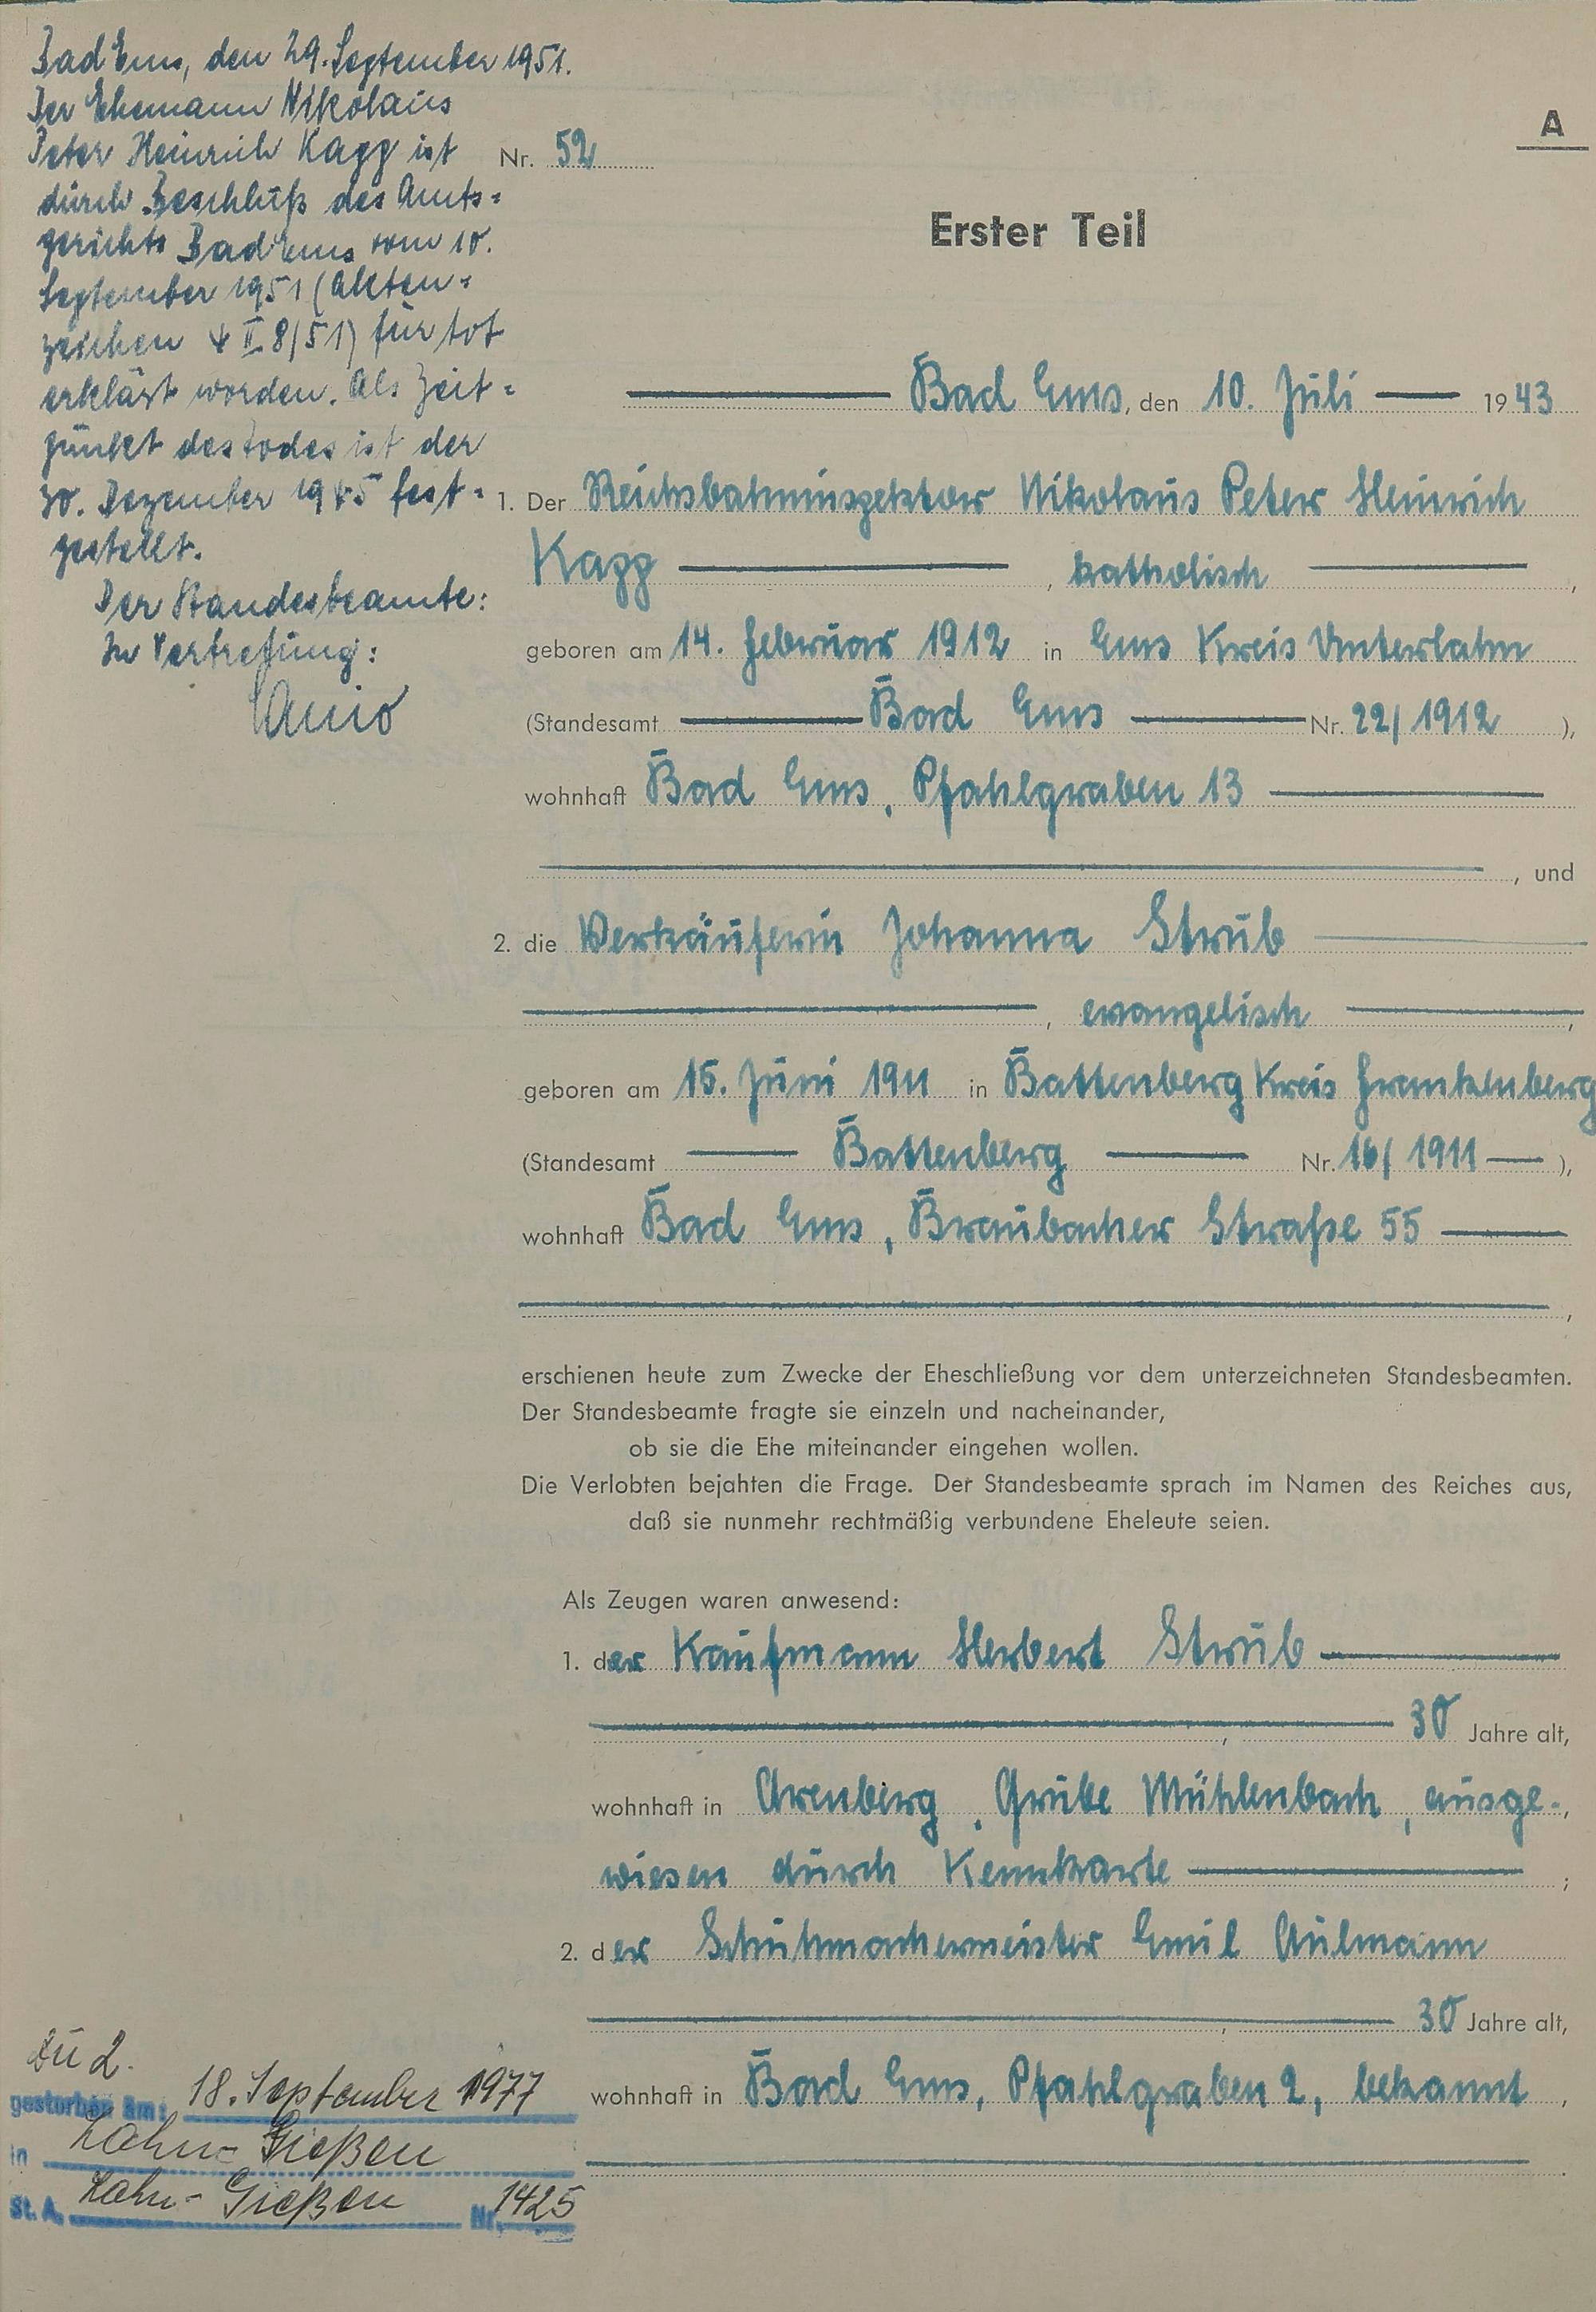 Bad Ems, den 29. September 1951.
Der Ehemann Nikolaus
Peter Heinrich Kagg ist
durch Beschluß des Amts=
gerichts Bad Ems vom 10.
September 1951 (Akten=
zeichen 4 II 8/51) für tot
erklärt worden. Als Zeit=
punkt des Todes ist der
30. Dezember 1945 fest=
gestellt.
Der Standesbeamte:
In Vertretung:
A
Nr. 52
Erster Teil
Bad Ems, den 10. Juli 1943
1. Der Reichsbahninspektor Nikolaus Peter Heinrich
Kagg, katholisch,
geboren am 14. Februar 1912 in Ems Kreis Unterlahn
(Standesamt Bad Ems Nr. 22/1912),
wohnhaft Bad Ems, Pfahlgraben 13
, und
2. die Verkäuferin Johanna Strub
, evangelisch,
geboren am 15. Juni 1911 in Battenberg Kreis Frankenberg
(Standesamt Battenberg Nr. 16/1911),
wohnhaft Bad Ems, Braubacher Straße 55
,
erschienen heute zum Zwecke der Eheschließung vor dem unterzeichneten Standesbeamten.
Der Standesbeamte fragte sie einzeln und nacheinander,
ob sie die Ehe miteinander eingehen wollen.
Die Verlobten bejahten die Frage. Der Standesbeamte sprach im Namen des Reiches aus,
daß sie nunmehr rechtmäßig verbundene Eheleute seien.
Als Zeugen waren anwesend:
1. der Kaufmann Herbert Strub
, 30 Jahre alt,
wohnhaft in Arenberg, Grube Mühlenbach, ausge-,
wiesen durch Kennkarte;
2. der Schuhmachermeister Emil Aulmann
, 30 Jahre alt,
wohnhaft in Bad Ems, Pfahlgraben 2, bekannt,
.
Zu 2.
gestorben am: 18. September 1977
in Lahn-Gießen
St. A. Lahn-Gießen Nr. 1425